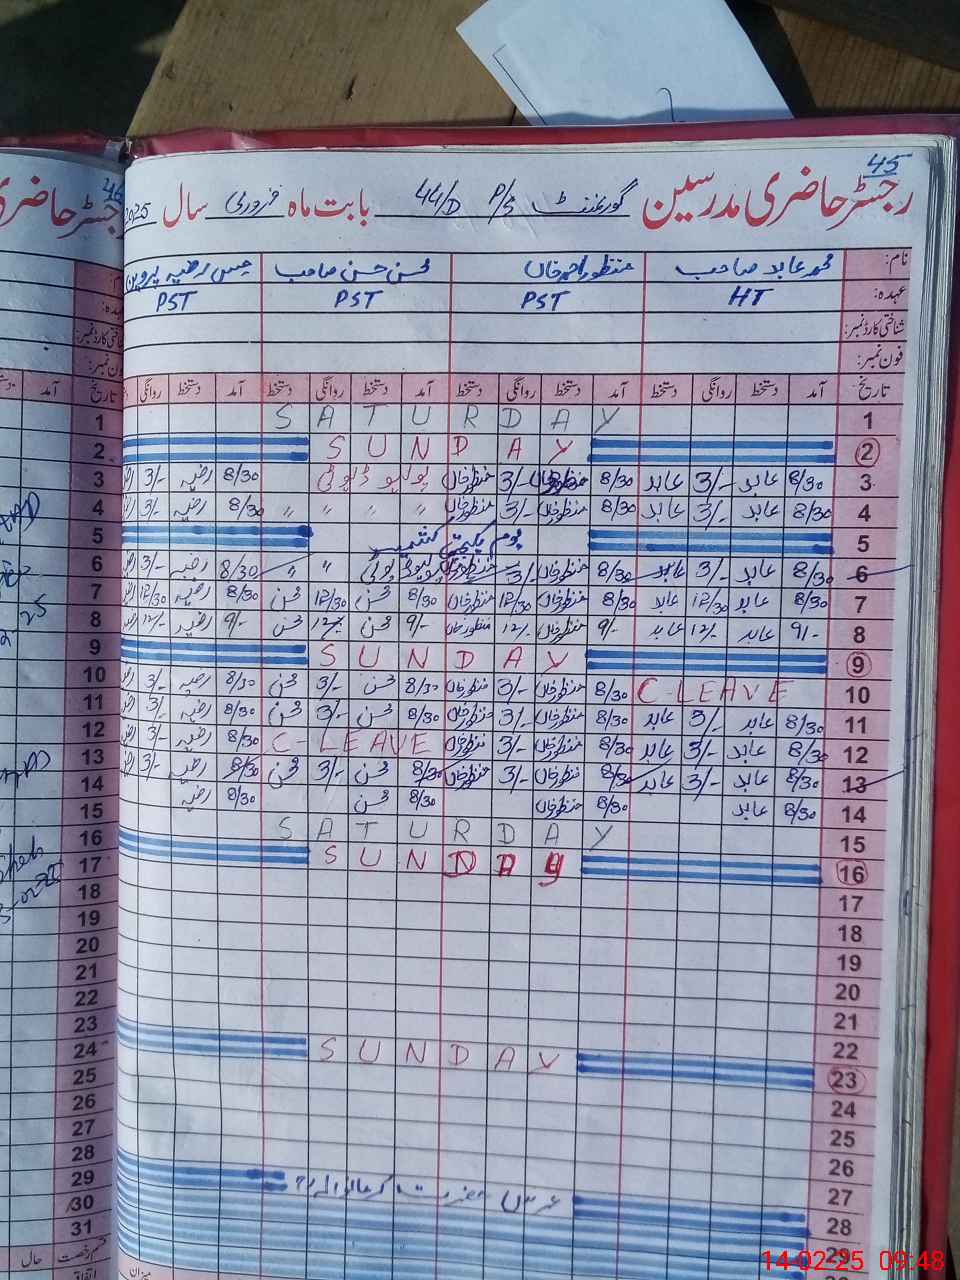 45
رجسٹر حاضری مدرسین گورنمنٹ P/S 44/D بابت ماہ فروری سال 2025
نام: محمد عابد صاحب منظور احمد خاں محسن حسن صاحب مس رضیہ پروین
عہدہ: HT PST PST PST
شناختی کارڈ نمبر:
فون نمبر:
تاریخ آمد دستخط روانگی دستخط آمد دستخط روانگی دستخط آمد دستخط روانگی دستخط آمد دستخط روانگی
1 SATURDAY
2 SUNDAY
3 8/30 عابد 3/- عابد 8/30 منظور خاں 3/- منظور خاں پولیو ڈیوٹی 8/30 رضیہ 3/-
4 8/30 عابد 3/- عابد 8/30 منظور خاں 3/- منظور خاں " " " " 8/30 رضیہ 3/-
5 یوم یکجہتی کشمیر
6 8/30 عابد 3/- عابد 8/30 منظور خاں 3/- منظور خاں " " 8/30 رضیہ 3/-
7 8/30 عابد 12/30 عابد 8/30 منظور خاں 12/30 منظور خاں 8/30 محسن 12/30 محسن 8/30 رضیہ 12/30
8 9/- عابد 12/- عابد 9/- منظور خاں 12/- منظور خاں 9/- محسن 12/- محسن 9/- رضیہ 12/-
9 SUNDAY
10 C-LEAVE 8/30 منظور خاں 3/- منظور خاں 8/30 محسن 3/- محسن 8/30 رضیہ 3/-
11 8/30 عابد 3/- عابد 8/30 منظور خاں 3/- منظور خاں 8/30 محسن 3/- محسن 8/30 رضیہ 3/-
12 8/30 عابد 3/- عابد 8/30 منظور خاں 3/- منظور خاں C-LEAVE 8/30 رضیہ 3/-
13 8/30 عابد 3/- عابد 8/30 منظور خاں 3/- منظور خاں 8/30 محسن 3/- محسن 8/30 رضیہ 3/-
14 8/30 عابد 8/30 منظور خاں 8/30 محسن 8/30 رضیہ
15 SATURDAY
16 SUNDAY
17
18
19
20
21
22
23 SUNDAY
24
25
26
27
28 عرس حضرت
29
46
رجسٹر حاضری
آمد تاریخ
1
2
3
4
5
6
7
8
9
10
11
12
13
14
15
16
17
18
19
20
21
22
23
24
25
26
27
28
29
30
31
قسم رخصت حال
اتفاقی
میزان
14-02-25 09:48